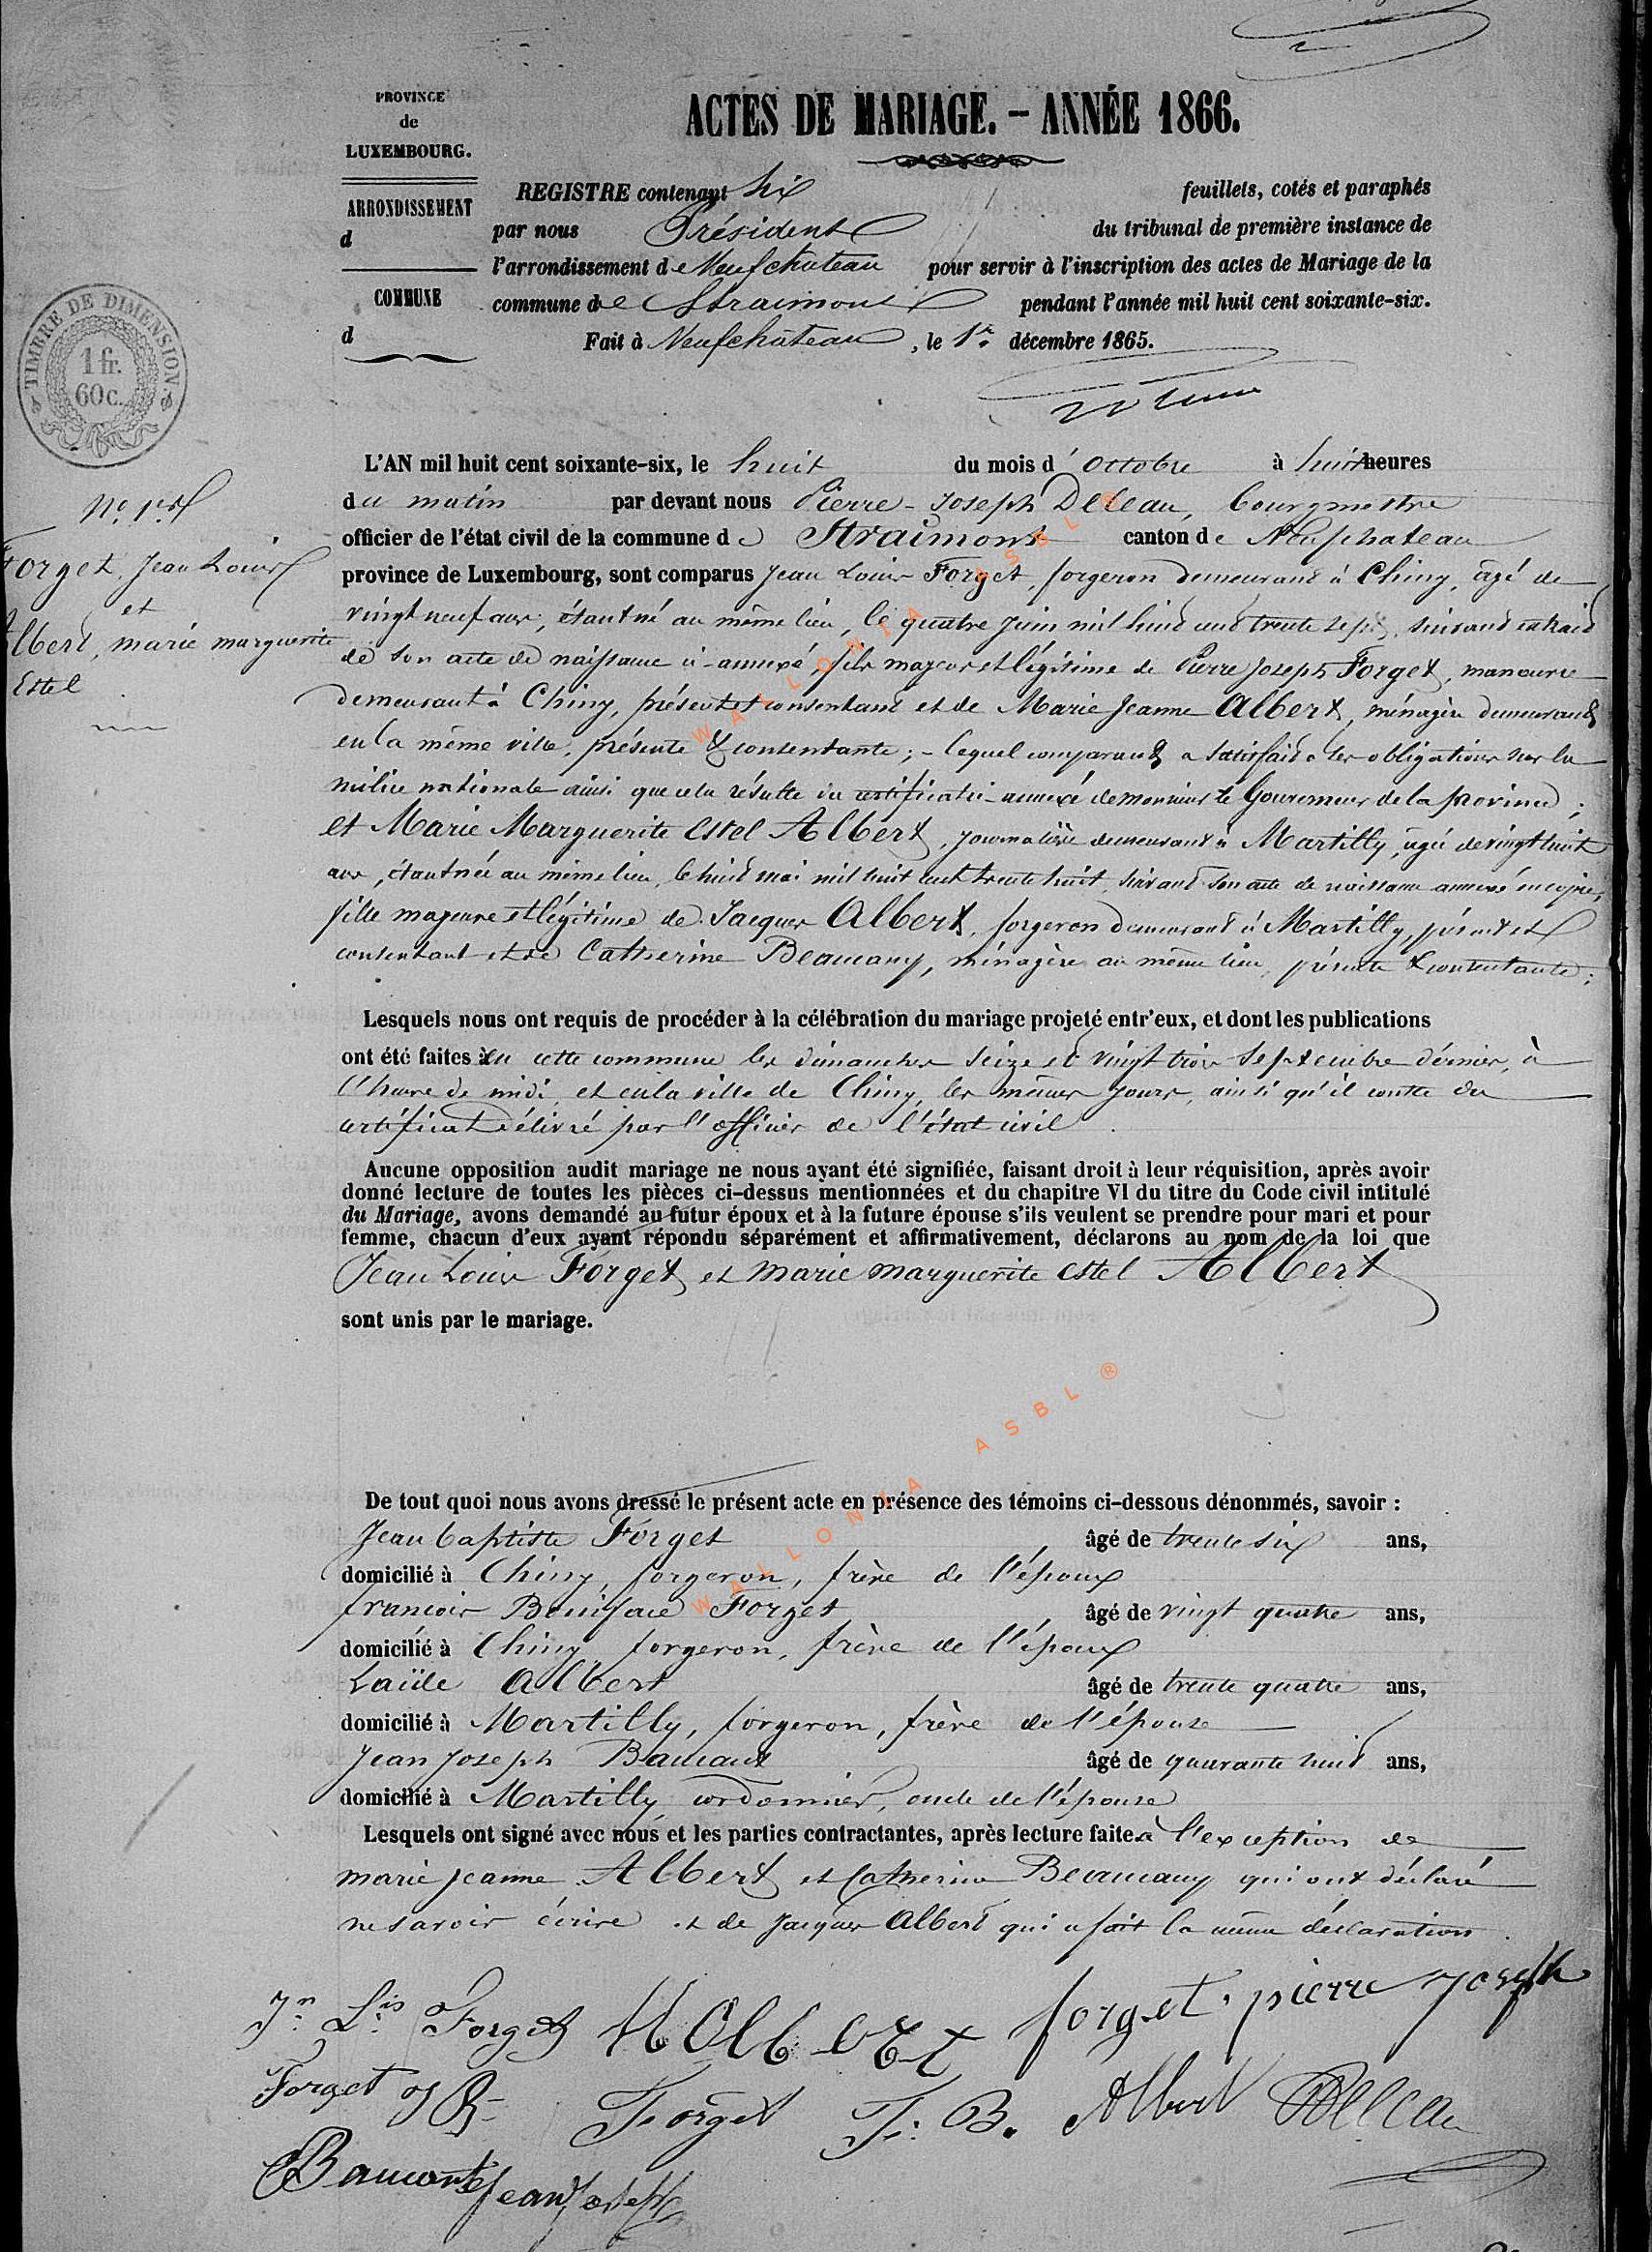 PROVINCE
de
LUXEMBOURG.
ARRONDISSEMENT
d
COMMUNE
d
TIMBRE DE DIMENSION.
1 fr.
60 c.
ACTES DE MARIAGE. – ANNÉE 1866.
REGISTRE contenant six feuillets, cotés et paraphés
par nous Président du tribunal de première instance de
l'arrondissement de Neufchateau pour servir à l'inscription des actes de Mariage de la
commune de Straimont pendant l'année mil huit cent soixante-six.
Fait à Neufchâteau, le 1er décembre 1865.
No 1er
Forget, Jean Louis
et
Albert, marie marguerite
Estel
L'AN mil huit cent soixante-six, le huit du mois d'octobre à huit heures
du matin par devant nous Pierre-Joseph Delleau, bourgmestre
officier de l'état civil de la commune de Straimont canton de Neufchateau
province de Luxembourg, sont comparus Jean Louis Forget, forgeron demeurant à Chiny, âgé de
vingt neuf ans, étant né au même lieu, le quatre juin mil huit cent trente sept, suivant extrait
de son acte de naissance ci-annexé, fils majeur et légitime de Pierre Joseph Forget, manœuvre
demeurant à Chiny, présent et consentant et de Marie Jeanne Albert, ménagère demeurant
en la même ville, présente & consentante; - lequel comparant a satisfait a ses obligations sur la
milice nationale ainsi que cela résulte du certificat ci-annexé de monsieur le Gouverneur de la province;
et Marie Marguerite Estel Albert, journalière demeurant à Martilly, agée de vingt huit
ans, étant née au même lieu, le huit mai mil huit cent trente huit, suivant son acte de naissance annexé en copie,
fille majeure et légitime de Jacques Albert, forgeron demeurant à Martilly, présent et
consentant et de Catherine Beaucamp, ménagère au même lieu, présente & consentante;
Lesquels nous ont requis de procéder à la célébration du mariage projeté entr'eux, et dont les publications
ont été faites en cette commune les dimanches seize et vingt trois septembre dernier, à
l'heure de midi, et en la ville de Chiny, les mêmes jours, ainsi qu'il conste du
certificat délivré par l'officier de l'état civil.
Aucune opposition audit mariage ne nous ayant été signifiée, faisant droit à leur réquisition, après avoir
donné lecture de toutes les pièces ci-dessus mentionnées et du chapitre VI du titre du Code civil intitulé
du Mariage, avons demandé au futur époux et à la future épouse s'ils veulent se prendre pour mari et pour
femme, chacun d'eux ayant répondu séparément et affirmativement, déclarons au nom de la loi que
Jean Louis Forget et Marie Marguerite Estel Albert
sont unis par le mariage.
De tout quoi nous avons dressé le présent acte en présence des témoins ci-dessous dénommés, savoir :
Jean baptiste Forget âgé de trente six ans,
domicilié à Chiny, forgeron, frère de l'époux
francois Boniface Forget âgé de vingt quatre ans,
domicilié à Chiny forgeron, frère de l'époux
Albert âgé de trente quatre ans,
domicilié à Martilly, forgeron, frère de l'épouse
Jean Joseph âgé de quarante huit ans,
domicilié à Martilly cordonnier, oncle de l'épouse
Lesquels ont signé avec nous et les parties contractantes, après lecture faite à l'exception de
marie jeanne Albert et Catherine Beaucamp qui ont déclaré
ne savoir écrire et de Jacques Albert qui a fait la même déclaration.
Jn Lis Forget M Albert forget pierre joseph
Forget Forget F. B. Albert Delleau
Jean Joseph
WALLONIA ASBL ®
WALLONIA ASBL ®